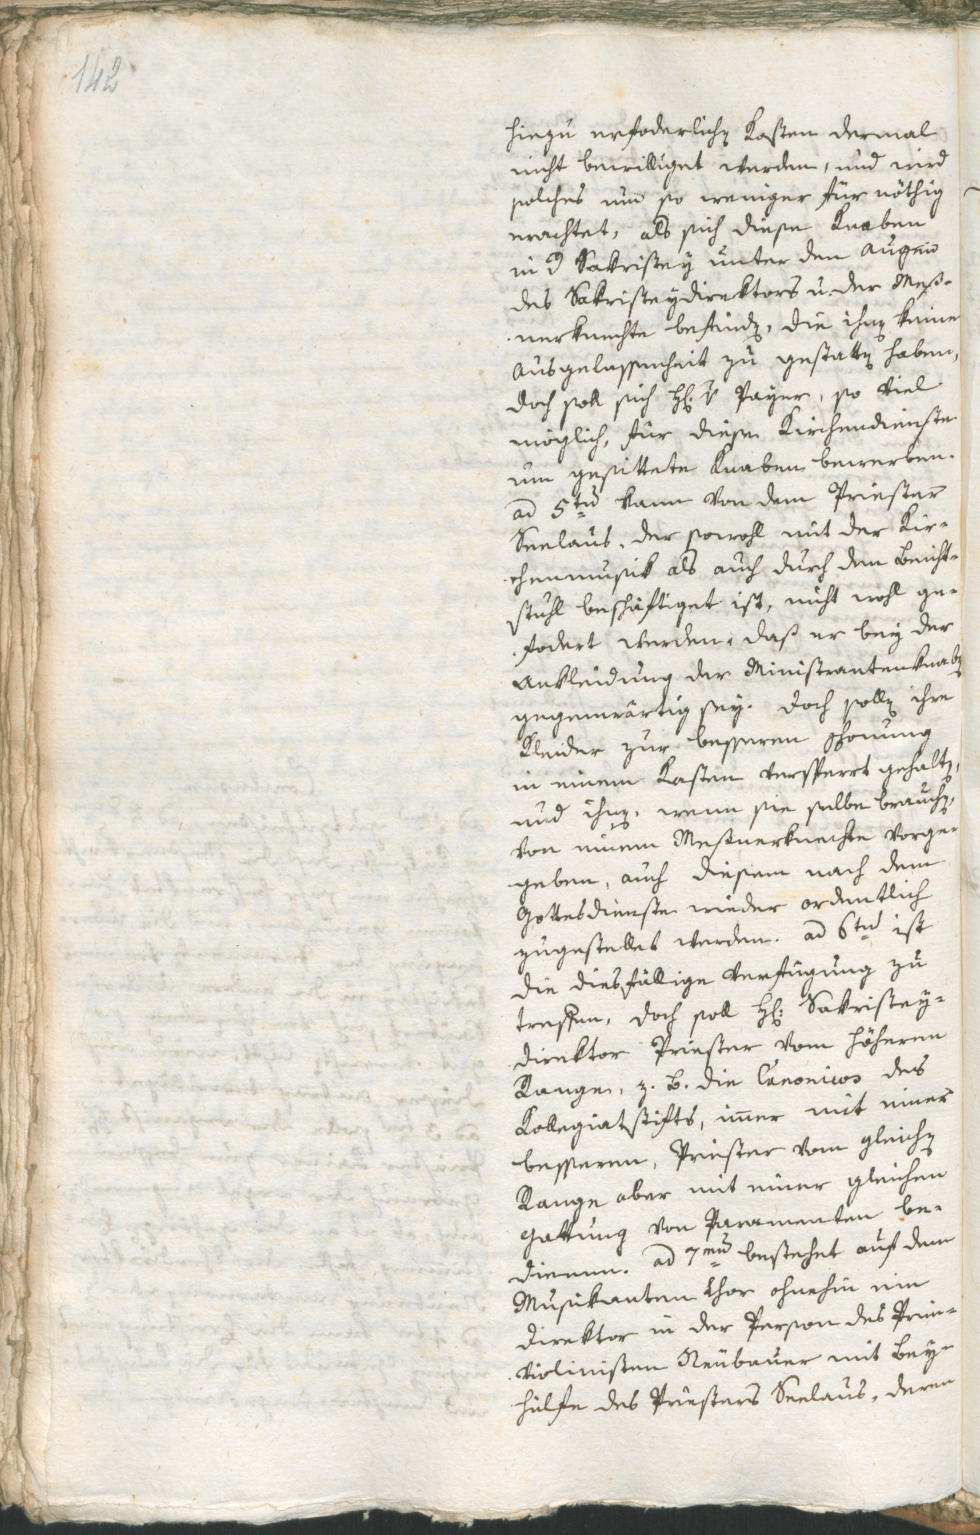 142
hiezu erfoderlichen Kasten dermal
nicht bewilliget werden, und wird
solches um so weniger für nöthig
erachtet, als sich diese Knaben
in d Sakristey unter den Augen
des Sakristeydirektors u. der Meß-
nerknechte befinden, die ihnen keine
Ausgelassenheit zu gestatten haben,
doch soll sich H: v Payer, so viel
möglich, für diese Kirchendienste
um gesittete Knaben bewerben.
ad 5tu kann von dem Priester
Seelaus, der sowohl mit der Kir-
chenmusik als auch durch den Beicht-
stuhl beschäftiget ist, nicht wohl ge-
fodert werden, daß er bey der
Ankleidung der Ministrantenknaben
gegenwärtig sey. Doch sollen ihre
Kleider zur besseren Schonung
in einem Kasten versperrt gehalten,
und ihnen, wenn sie selbe brauchen,
von einem Meßnerknechte vorge-
geben, auch diesem nach dem
Gottesdienste wieder ordentlich
zugestellet werden. ad 6tu ist
die diesfällige Verfügung zu
treffen, doch soll H: Sakristey-
direktor Priester vom höheren
Range, z. B. die Canonicos des
Kollegiatstifts, immer mit einer
besseren, Priester vom gleichen
Range aber mit einer gleichen
Gattung von Paramenten be-
dienen. ad 7mu bestehet auf dem
Musikanten Chor ohnehin ein
Direktor in der Person des Prim-
violinisten Neubauer mit Bey-
hülfe des Priesters Seelaus, deren